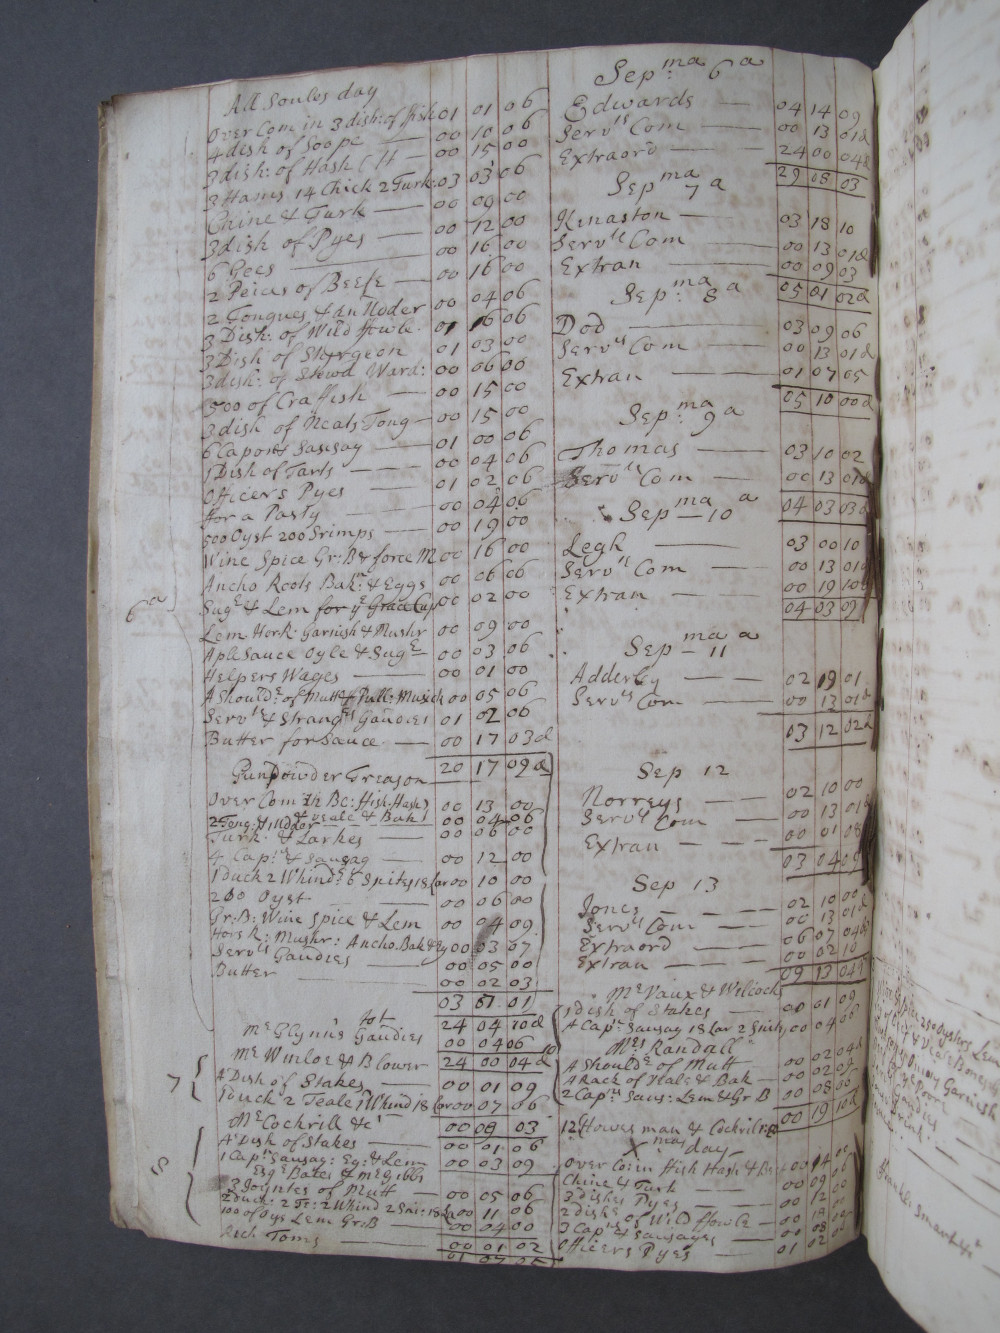 All Soules day
Over Com in 3 dish: of ffish 01 01 06
4 dish of Soope 00 10 06
3 dish: of Hash 00 15 00
3 Hams 14 Chick 2 Turk: 03 03 06
Chine & Turk 00 09 00
3 dish of Pyes 00 12 00
6 Gees 00 16 00
2 Peices of Beefe 00 16 00
2 Tongues & an Uder 00 04 06
3 Dish: of Wild ffowle 01 16 06
3 Dish of Sturgeon 01 03 00
3 dish: of Stewd Ward: 00 06 00
500 of Craffish 00 15 00
3 dish of Neats Tong 00 15 00
6 Capons Sausag 01 00 06
1 Dish of Tarts 00 04 06
Officers Pyes 01 02 06
ffor a Pasty 00 04 06
500 Oyst 200 Srimps 00 19 00
Wine Spice Gr: B & force M 00 16 00
Ancho Roots Bakn & Eggs 00 06 06
Sugr & Lem for ye Grace Cup 00 02 00
6a
Lem Hork Garnish & Mushr 00 09 00
Aple Sauce Oyle & Sugr 00 03 06
Helpers Wages 00 01 00
A Shouldr of Mutt & Pull: Musick 00 05 06
Servts & Strangrs Gaudies 01 02 06
Butter for Sauce 00 17 03d
20 17 09d
Gunpowder Treason
Over Com in Bc: Hish Hash 00 13 00
2 Tong: & Udder & veale & Bak 00 04 06
Turk: & Larkes 00 06 00
4 Capns & Sausag 00 12 00
1 duck 2 Whinds 6 Snites 18 Lar 00 10 00
200 Oyst 00 06 00
Gr: B: Wine Spice & Lem 00 04 09
Horsh: Mushr: Ancho Bak & Eg 00 03 07
Servts Gaudies 00 05 00
Butter 00 02 03
03 07 01
tot 24 04 10d
Mr Glynns Gaudies 00 04 06
24 00 04d
Mr Winloe & Blower
7
A Dish of Stakes 00 01 09
1 duck 2 Teale 1 Whind 18 Lar 00 07 06
00 09 03
Mr Cockrill &c
A Dish of Stakes 00 01 06
1 Capn Sausag: Eg: & Lem 00 03 09
Esqr Bates & Mr Gibbs
8
3 Joyntes of Mutt 00 05 06
2 Duck: 2 Te: 2 Whind 2 Sni: 18 La 00 11 06
100 of Oys Lem Gr: B 00 04 00
Rich Toms 00 01 02
01 07 05
Sepma 6a
Edwards 04 14 09
Servts Com 00 13 01d
Extraord 24 00 04d
29 08 03
Sepma 7a
Kinaston 03 18 10
Servts Com 00 13 01d
Extran 00 09 03
05 01 02d
Sepma 8a
Dod 03 09 06
Servts Com 00 13 01d
Extran 01 07 05
05 10 00d
Sepma 9a
Thomas 03 10 02
Servts Com 00 13 01d
04 03 03d
Sepma 10a
Legh 03 00 10
Servts Com 00 13 01d
Extran 00 19 10d
04 03 09
Sepma 11a
Adderley 02 19 01
Servts Com 00 13 01d
03 12 02d
Sep 12
Norreys 02 10 00
Servts Com 00 13 01d
Extran 00 01 08
03 04 09
Sep 13
Jones 02 10 00
Servts Com 00 13 01d
Extraord 06 07 04
Extran 00 02 10
09 13 04
Mr Vaux & Wilcock
1 dish of Stakes 00 01 09
A Capn Sausag 18 Lar 2 Snites 00 04 06
Mrs Randall
A Shouldr of Mutt 00 02 04d
A Rack of Veale & Bak 00 02 09
2 Capns Saus: Lem & Gr B 00 08 00
00 19 10d
12 Howes man & Cockrils
Xmas day
Over Co in ffish Hash 00 14 00
Chine & Turk 00 09 00
3 dishes Pyes 00 12 00
2 dishs of Wild ffowle 00 18 00
3 Capns & Sausages 00 08 00
Officers Pyes 01 02 00